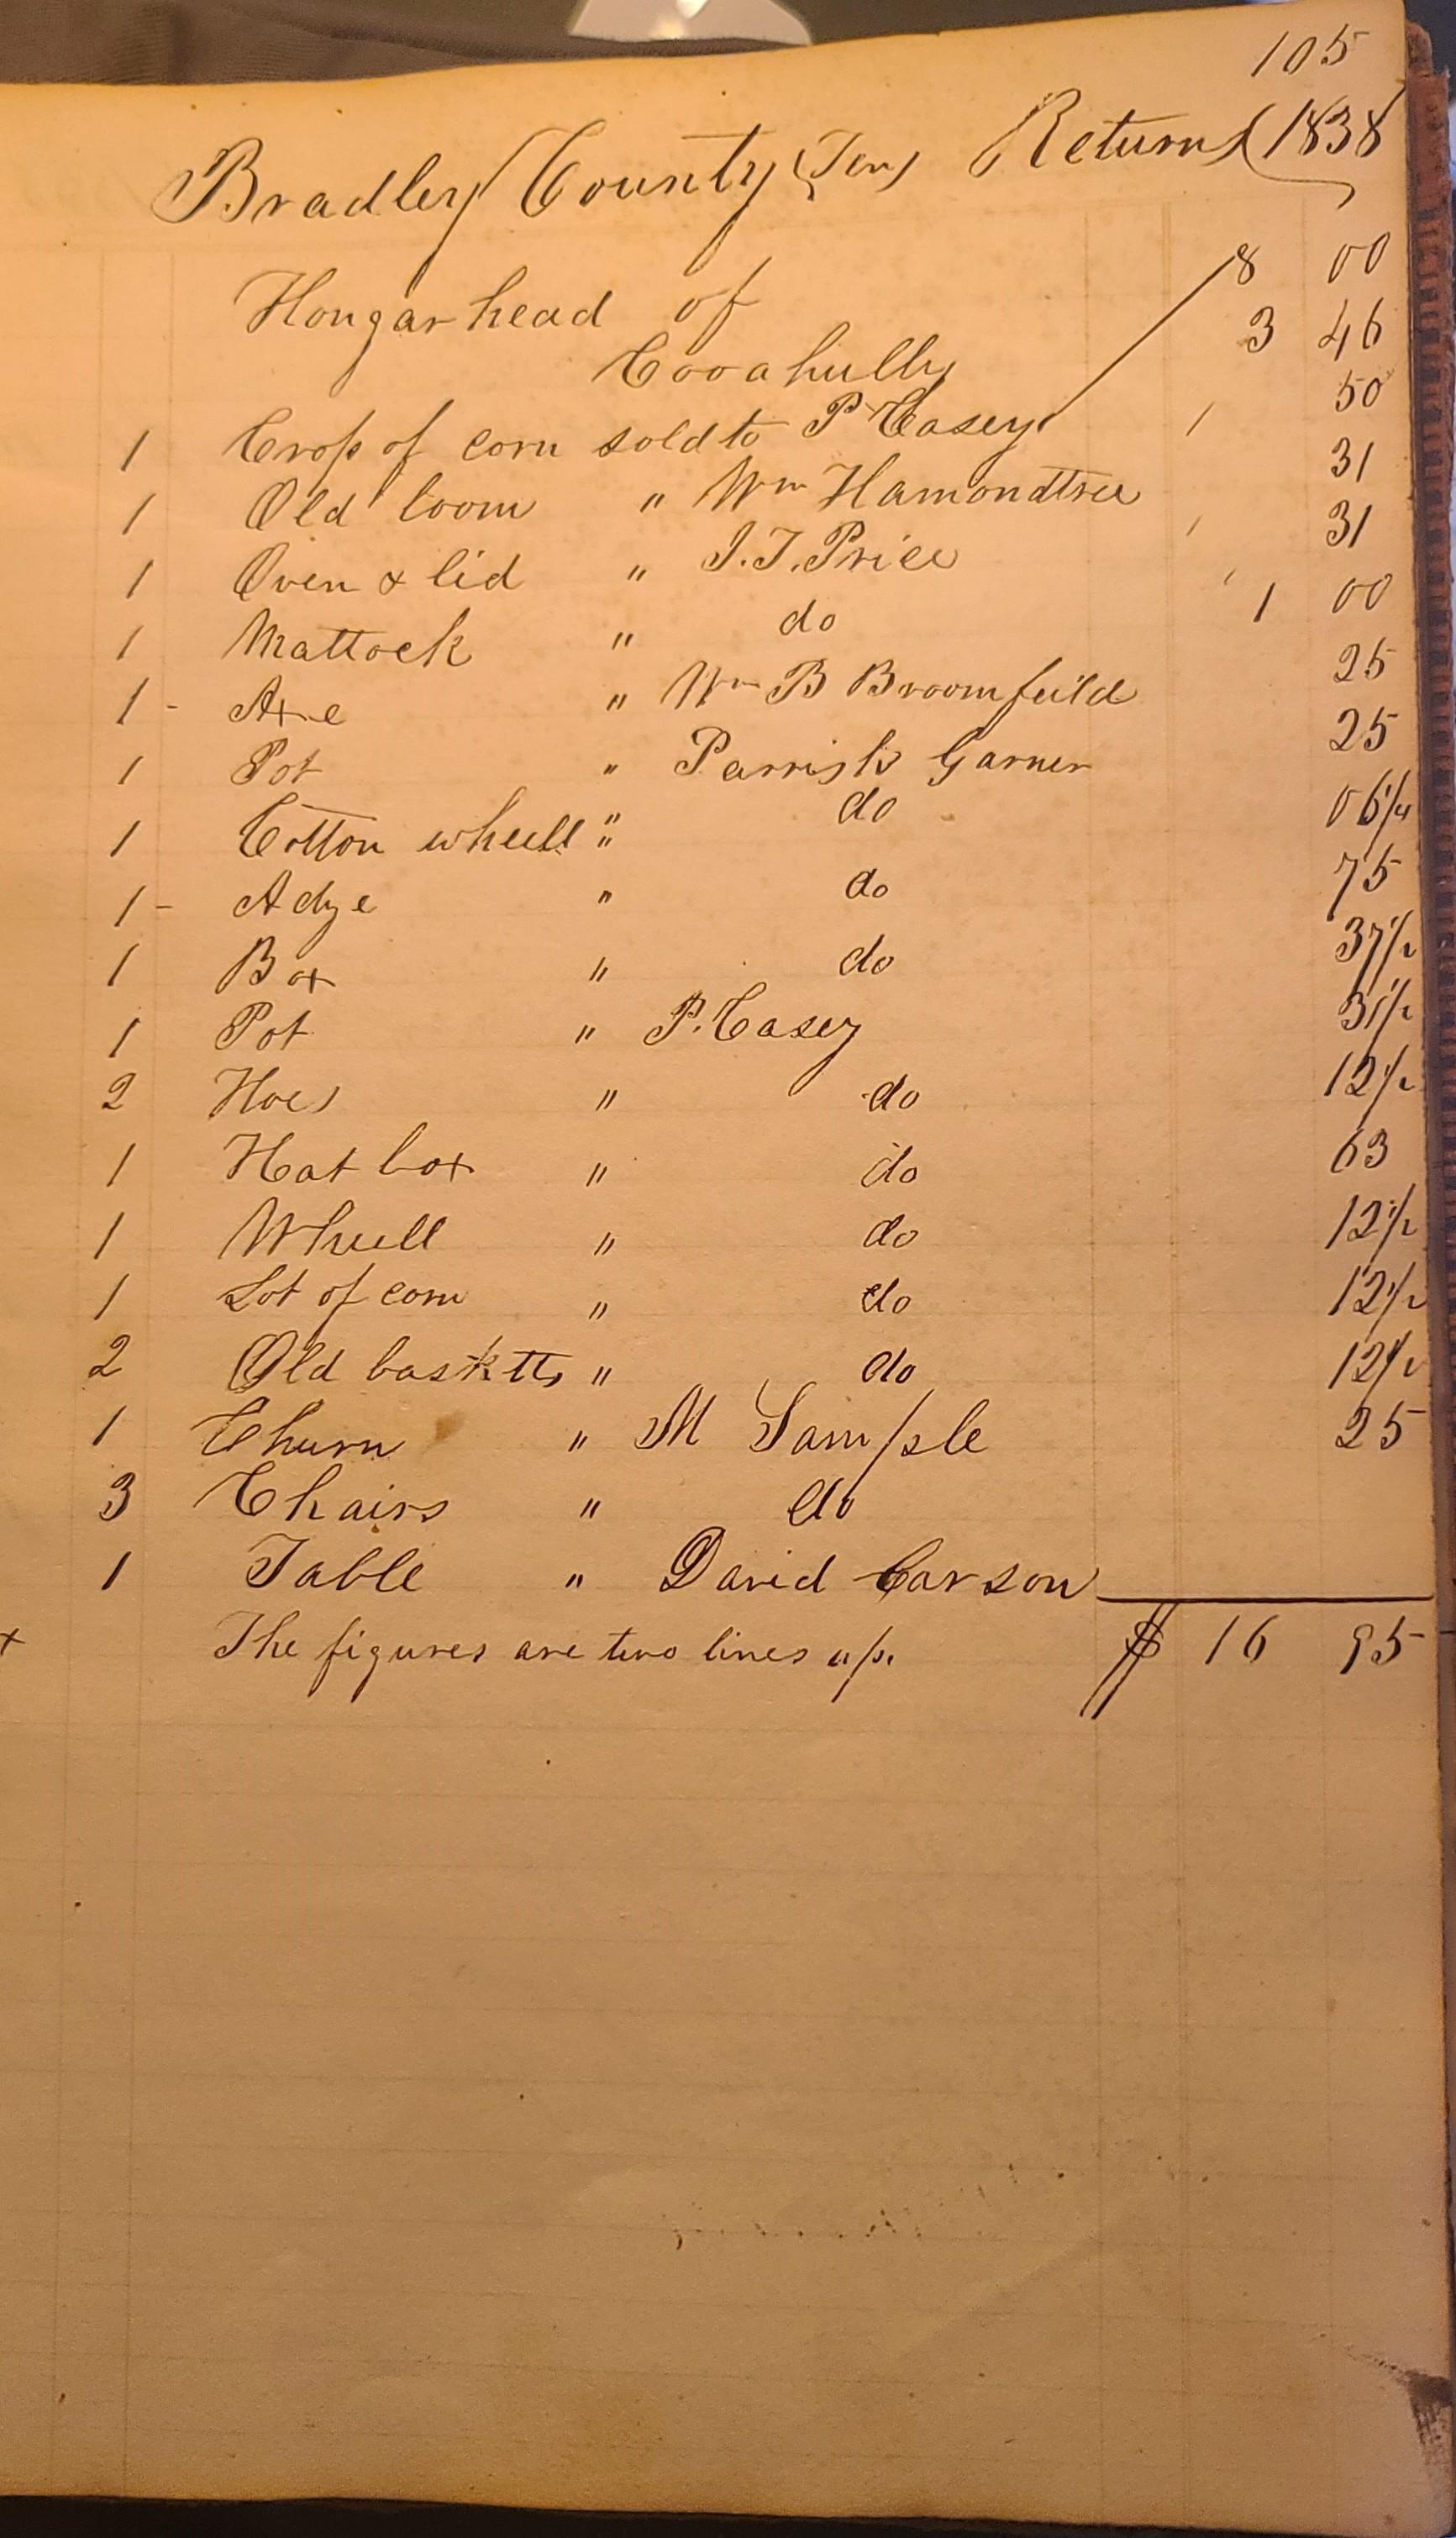 105
Bradley County (Ten) Returns 1838
Hongar head of 8 00
Cooahully 3 46
1 Crop of corn sold to P Casey 50
1 Old loom " Wm Hamondtree 31
1 Oven & lid " J. T. Price 31
1 Mattock " do 1 00
1 - Axe " Wm B Broomfeild 25
1 Pot " Parrish Garner 25
1 Cotton wheell " do 06 1/4
1 - Adze " do 75
1 Box " do 37 1/2
1 Pot " P. Casey 31 1/2
2 Hoes " do 12 1/2
1 Hat box " do 63
1 Wheell " do 12 1/2
1 Lot of corn " do 12 1/2
2 Old basketts " do 12 1/2
1 Churn " M Sample 25
3 Chairs " do
1 Table " David Carson
x The figures are two lines up. $ 16 95